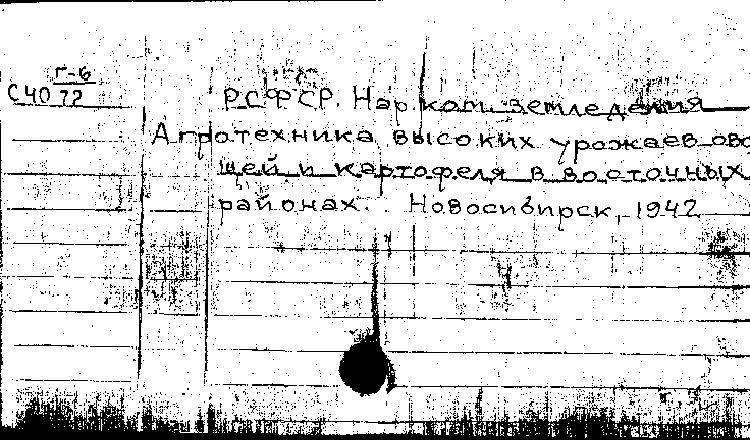 Г-6
С4072
РСФСР. Нар. ком. земледелия
Агротехника высоких урожаев ово
щей и картофеля в восточных
районах. Новосибирск, 1942